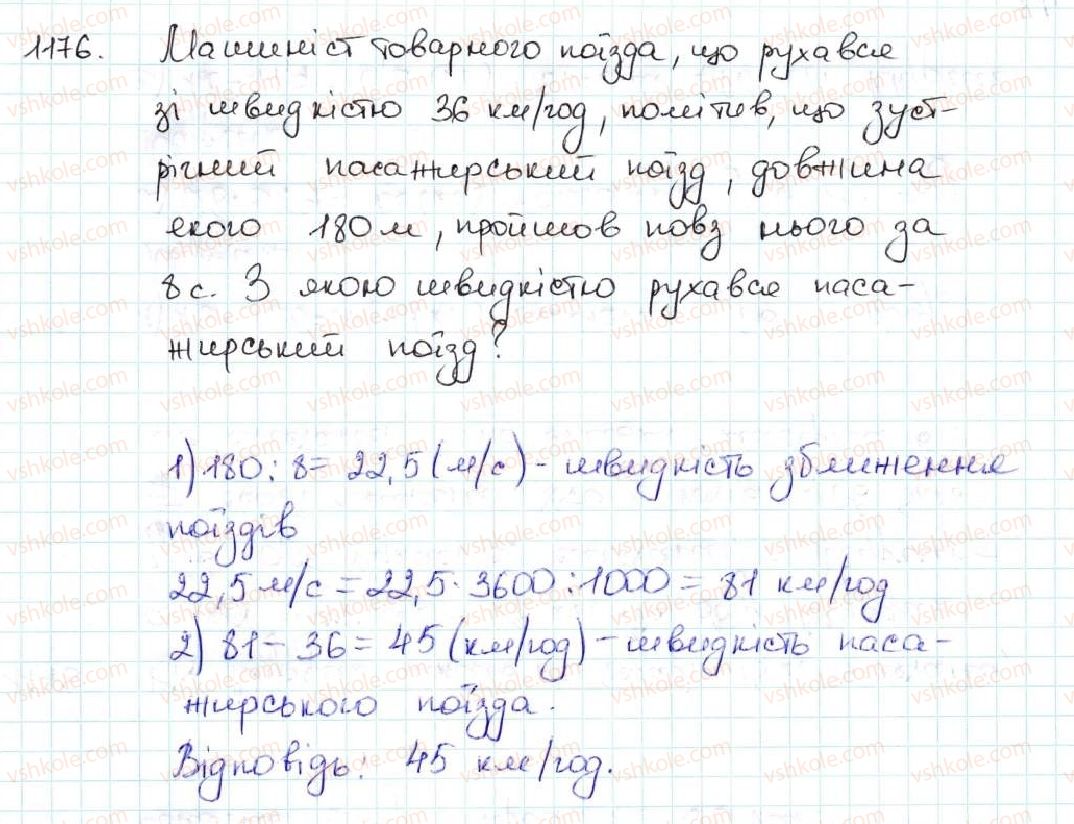 1176. Машиніст товарного поїзда, що рухався
зі швидкістю 36 км/год, помітив, що зуст-
річний пасажирський поїзд, довжина
якого 180 м, пройшов повз нього за
8 с. З якою швидкістю рухався паса-
жирський поїзд?
1) 180 : 8 = 22,5 (м/с) - швидкість зближення
поїздів
22,5 м/с = 22,5 · 3600 : 1000 = 81 км/год
2) 81 - 36 = 45 (км/год) - швидкість паса-
жирського поїзда.
Відповідь: 45 км/год.